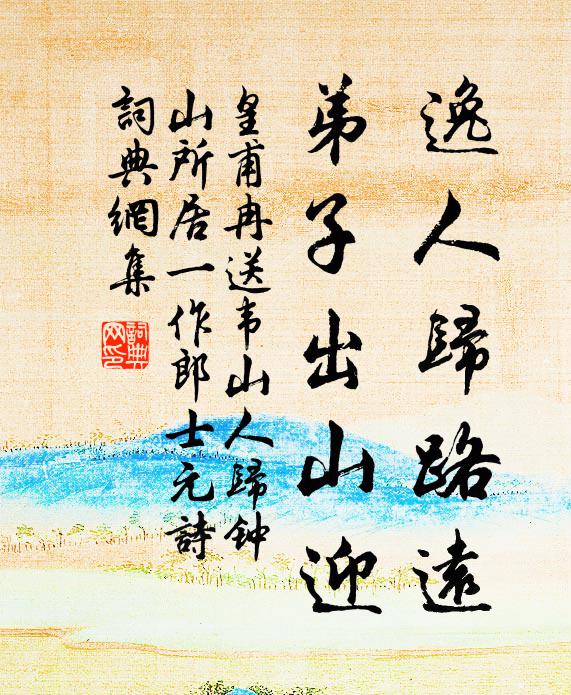 逸人歸路遠
弟子出山迎
皇甫冉送韦山人歸钟
山所居一作郎士元詩
詞典網集
詞典
网印